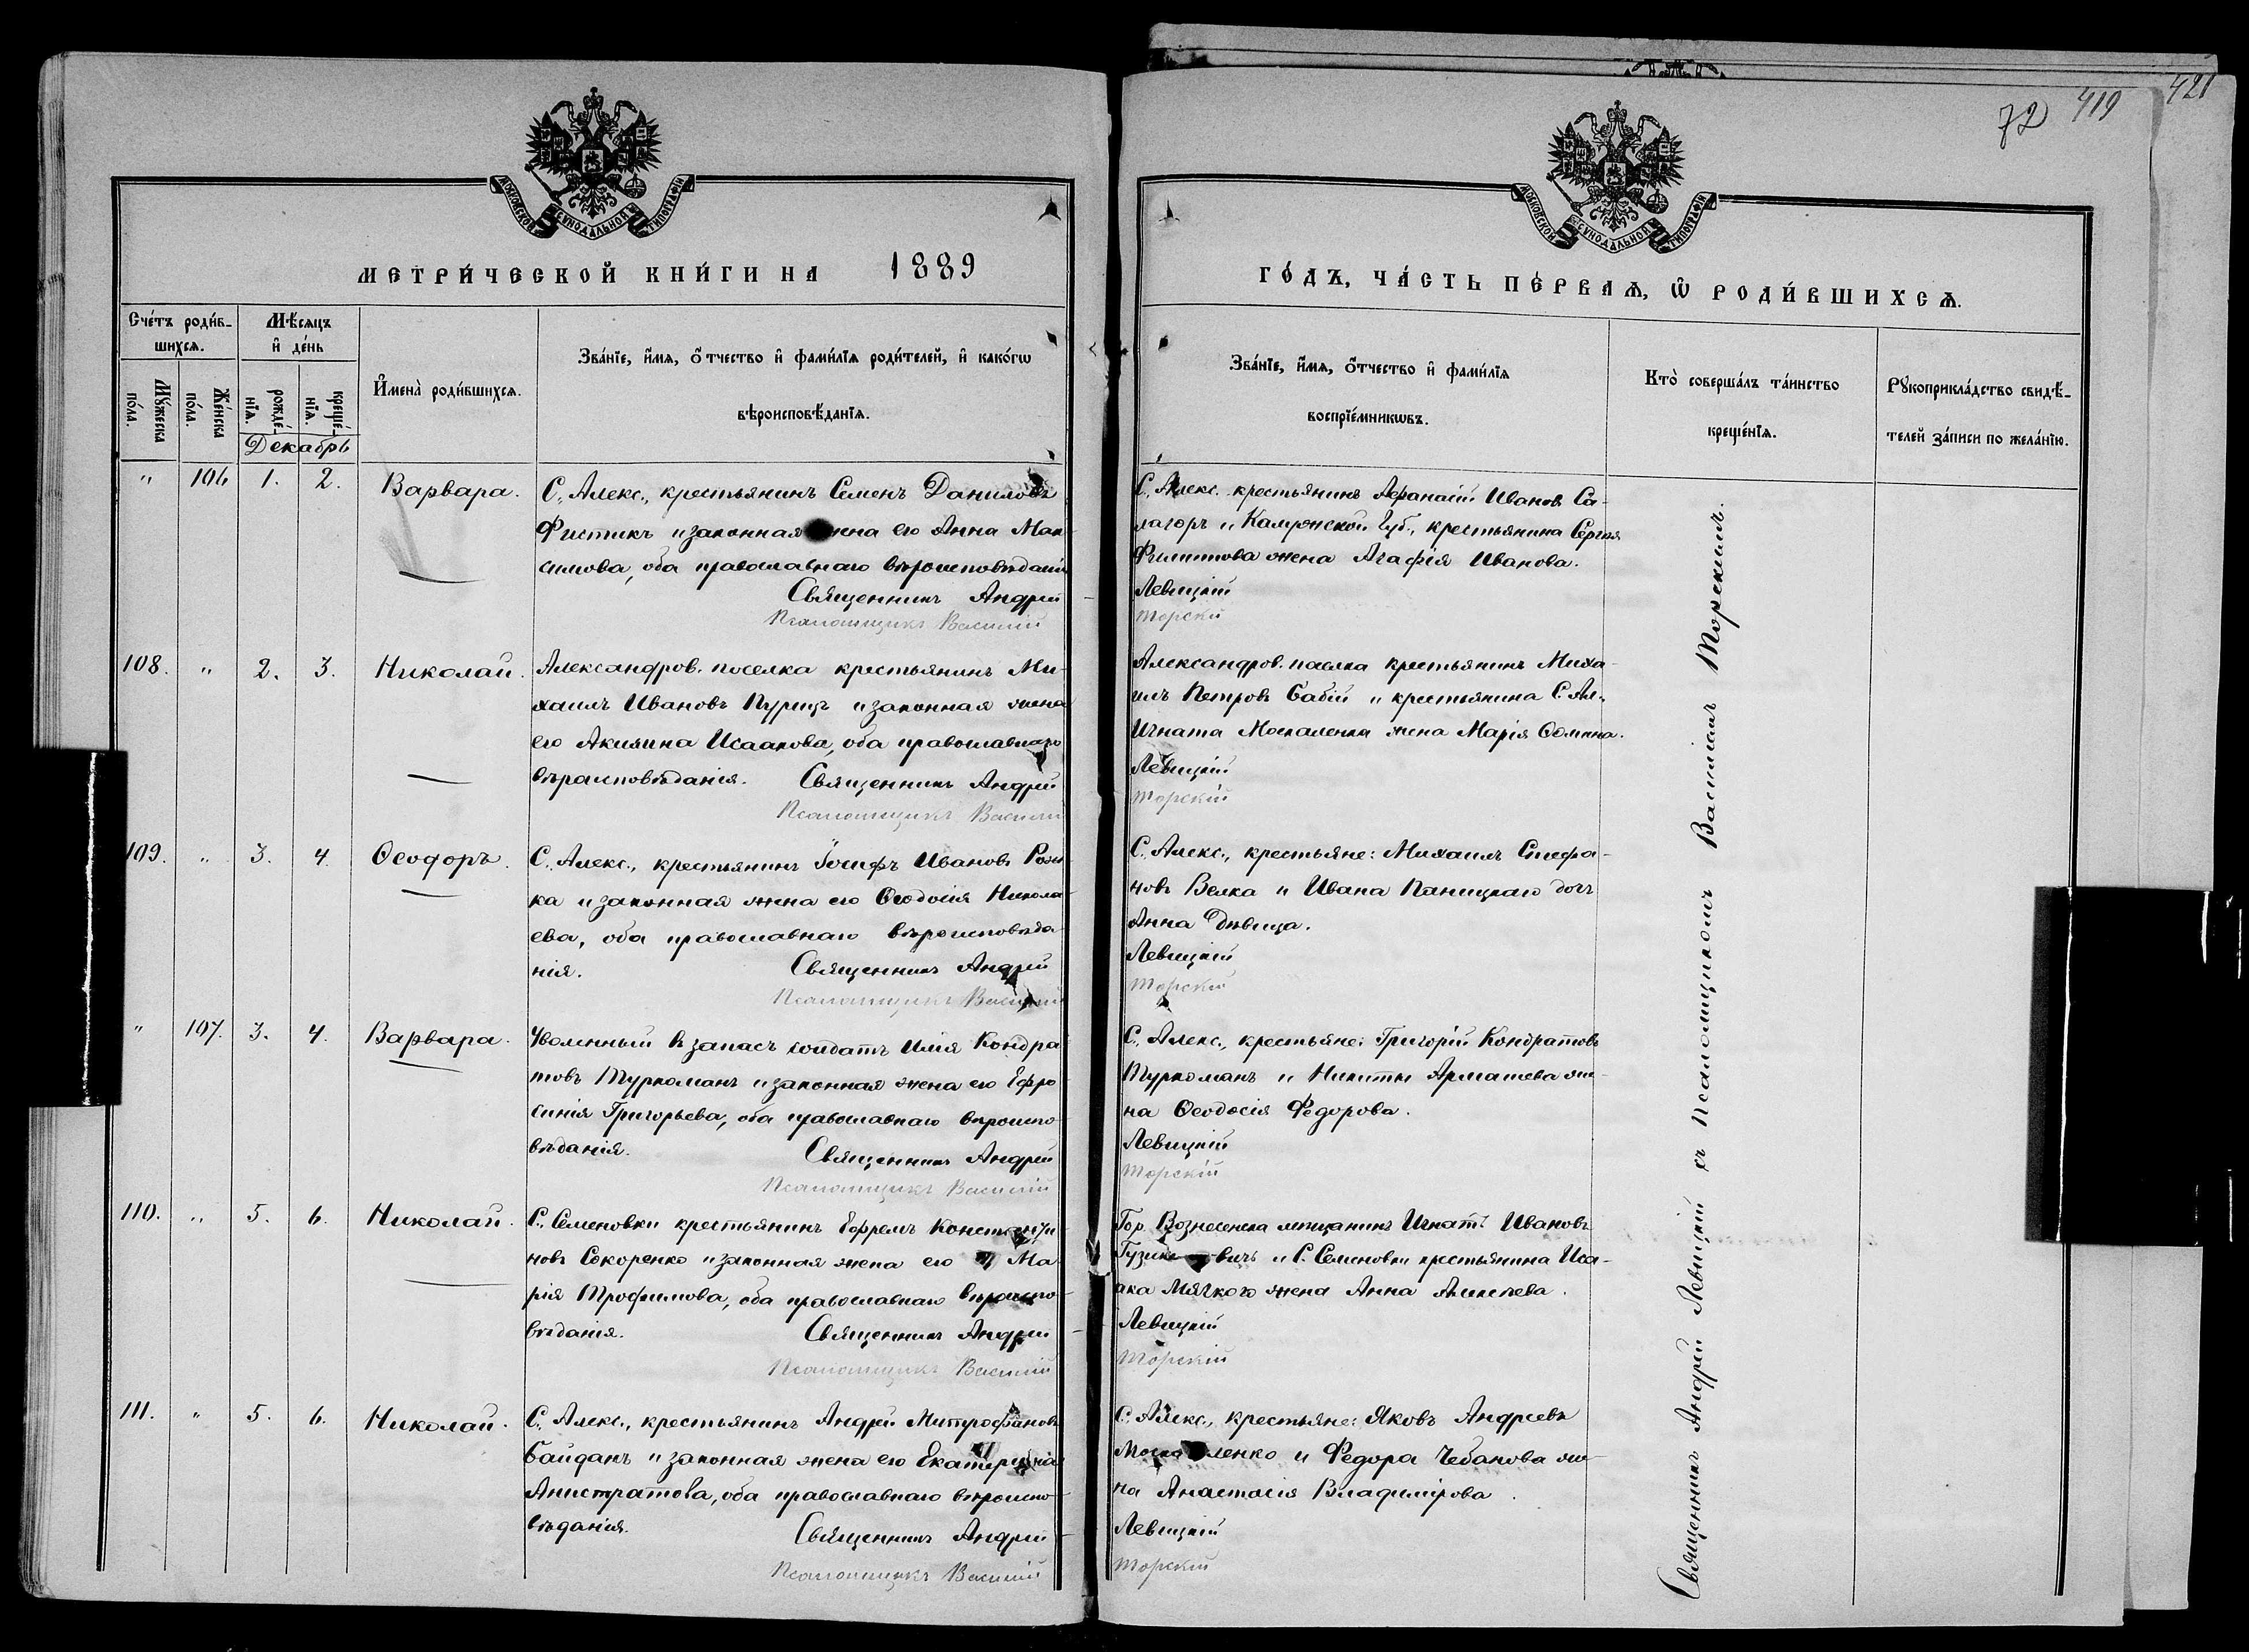 72 419 421
МОСКОВСКОЙ СѴНОДАЛЬНОЙ ТИПОГРАФІИ
МОСКОВСКОЙ СѴНОДАЛЬНОЙ ТИПОГРАФІИ
МЕТРИ́ЧЕСКОЙ КНИ́ГИ НА 1889
ГО́ДЪ, ЧА́СТЬ ПЕ́РВАѦ, Ѽ РОДИ́ВШИХСѦ.
Сче́тъ роди́в-
шихсѧ.
Мѣ́сѧцъ
и҆ де́нь
Мꙋ́жеска
по́ла.
Же́нска
по́ла.
рожде́-
нїѧ.
креще́-
нїѧ.
Декабрь
И҆мена̀ роди́вшихсѧ.
Зва́нїе, и҆́мѧ, ѻ҆́тчество и҆ фами́лїѧ роди́телей, и҆ како́гѡ
вѣроисповѣ́данїѧ.
Зва́нїе, и҆́мѧ, ѻ҆́тчество и҆ фами́лїѧ
воспрїе́мникѡвъ.
Кто̀ соверша́лъ та́инство
креще́нїѧ.
Рꙋкоприкла́дство свидѣ́-
телей за́писи по жела́нїю.
" 106 1. 2. Варвара.
С. Алекс., крестьянинъ Семенъ Даниловъ
Фистикъ и законная жена его Анна Мак-
симова, оба православнаго вѣроисповѣданія
Священникъ Андрей
Псаломщикъ Василій
С. Алекс. крестьянинъ Афанасій Ивановъ Са-
лагоръ и Калужской Губ., крестьянина Сергея
Филиппова жена Агафія Иванова.
Левицкій
Морскій
108. " 2. 3. Николай.
Александров. поселка крестьянинъ Ми-
хаилъ Ивановъ Пурицъ и законная жена
его Акилина Исаакова, оба православнаго
вѣроисповѣданія. Священникъ Андрей
Псаломщикъ Василій
Александров. поселка крестьянинъ Миха-
илъ Петровъ Бабій и крестьянина С. Ал.
Игната Москаленка жена Марія Фомина.
Левицкій
Морскій
109. " 3. 4. Ѳеодоръ.
С. Алекс., крестьянинъ Іосифъ Ивановъ Рож-
ка и законная жена его Ѳеодосія Никола-
ева, оба православнаго вѣроисповѣда-
нія. Священникъ Андрей
Псаломщикъ Василій
С. Алекс., крестьяне: Михаилъ Стефа-
новъ Велка и Ивана Паницкаго дочь
Анна дѣвица.
Левицкій
Морскій
" 107. 3. 4. Варвара.
Уволенный въ запасъ солдатъ Илія Кондра-
товъ Туркоманъ и законная жена его Ефро-
синія Григорьева, оба православнаго вѣроиспо-
вѣданія. Священникъ Андрей
Псаломщикъ Василій
С. Алекс., крестьяне: Григорій Кондратовъ
Туркоманъ и Никиты Армашева же-
на Ѳеодосія Федорова.
Левицкій
Морскій
110. " 5. 6. Николай.
С. Семеновки крестьянинъ Ефремъ Константи-
новъ Сокоренко и законная жена его Ма-
рія Трофимова, оба православнаго вѣроиспо-
вѣданія. Священникъ Андрей
Псаломщикъ Василій
Гор. Вознесенска мещанинъ Игнатъ Ивановъ
и С. Семеновки крестьянина Иса-
ака Мягкого жена Анна Алексѣева.
Левицкій
Морскій
111. " 5. 6. Николай.
С. Алекс., крестьянинъ Андрей Митрофановъ
Байданъ и законная жена его Екатерина
Анистратова, оба православнаго вѣроиспо-
вѣданія. Священникъ Андрей
Псаломщикъ Василій
С. Алекс., крестьяне: Яковъ Андреевъ
Москаленко и Федора Чебанова же-
на Анастасія Владимірова.
Левицкій
Морскій
Священникъ Андрей Левицкій съ Псаломщикомъ Василіемъ Морскимъ.